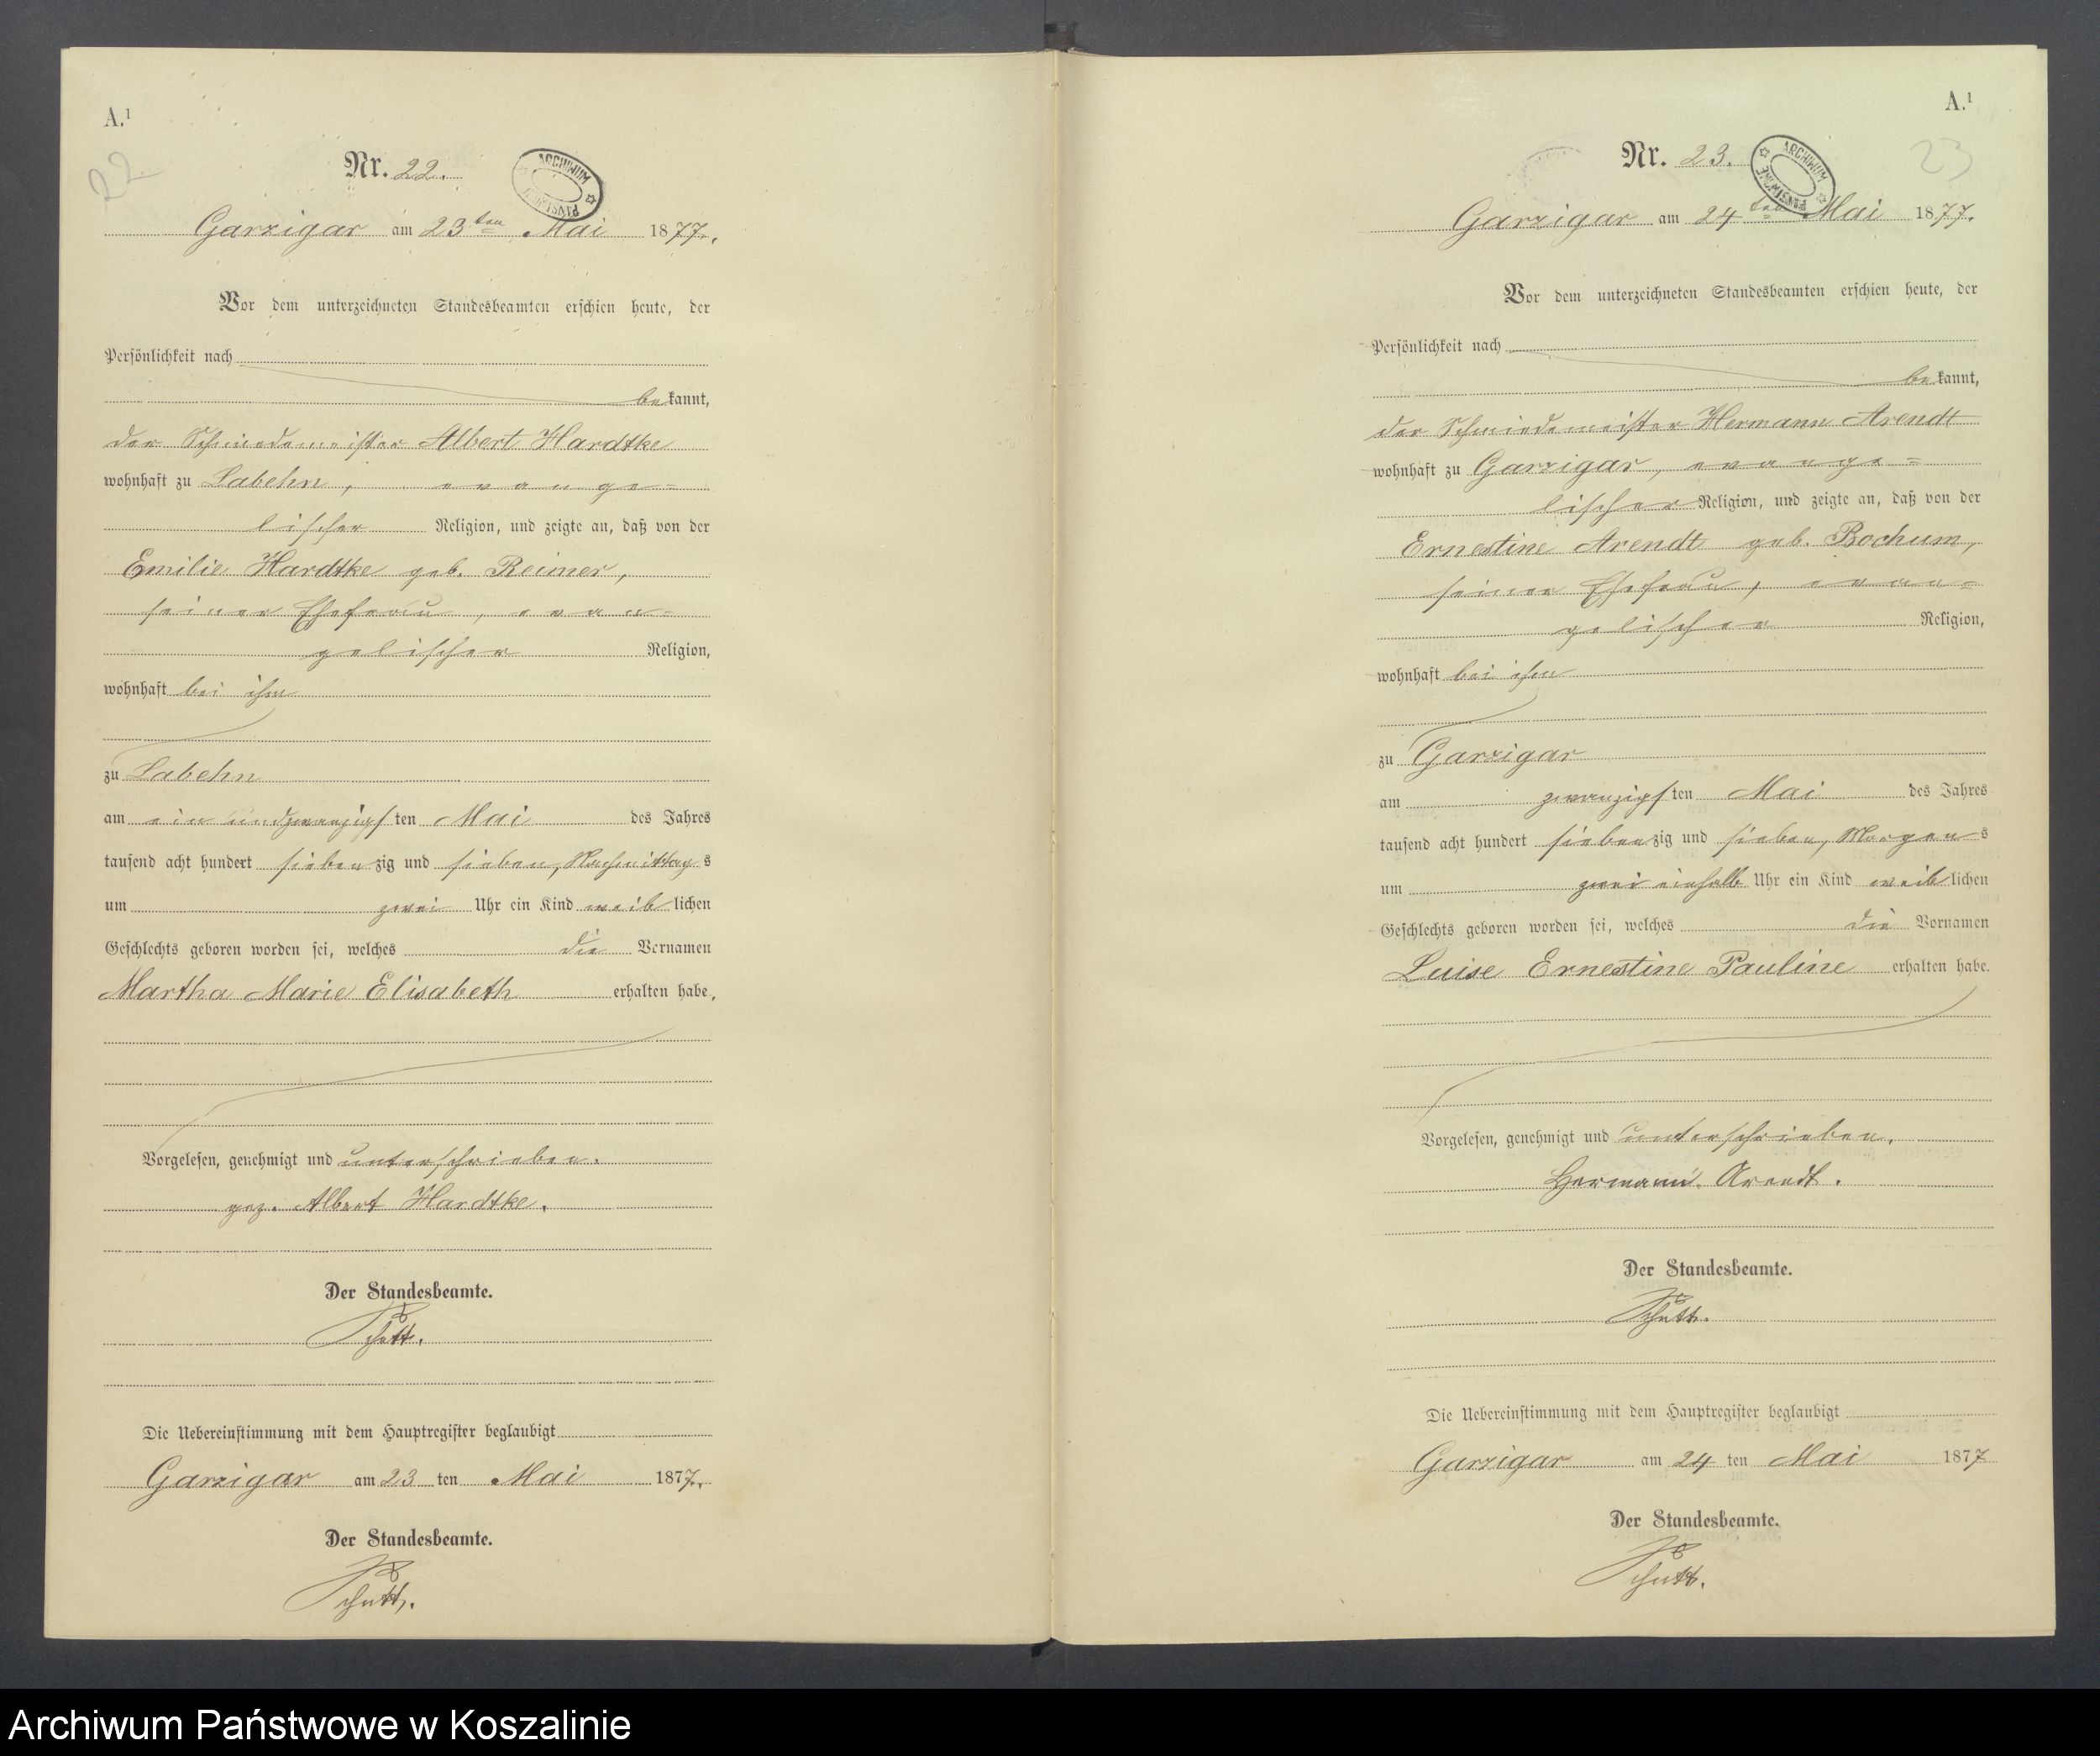 A.¹
22
Nr. 22.
ARCHIWUM PAŃSTWOWE
Garzigar am 23ten Mai 1877.
Vor dem unterzeichneten Standesbeamten erschien heute, der
Persönlichkeit nach
bekannt,
der Schmiedemeister Albert Hardtke
wohnhaft zu Labehn, evange=
lischer Religion, und zeigte an, daß von der
Emilie Hardtke geb. Reimer,
seiner Ehefrau, evan=
gelischer Religion,
wohnhaft bei ihm
zu Labehn
am ein und zwanzigsten Mai des Jahres
tausend acht hundert siebenzig und sieben, Nachmittags
um zwei Uhr ein Kind weiblichen
Geschlechts geboren worden sei, welches die Vornamen
Martha Marie Elisabeth erhalten habe,
Vorgelesen, genehmigt und unterschrieben.
gez. Albert Hardtke.
Der Standesbeamte.
Die Uebereinstimmung mit dem Hauptregister beglaubigt
Garzigar am 23 ten Mai 1877.
Der Standesbeamte.
A.¹
23
Nr. 23.
ARCHIWUM PAŃSTWOWE
Garzigar am 24ten Mai 1877.
Vor dem unterzeichneten Standesbeamten erschien heute, der
Persönlichkeit nach
bekannt,
der Schmiedemeister Hermann Arendt
wohnhaft zu Garzigar, evange=
lischer Religion, und zeigte an, daß von der
Ernestine Arendt geb. Bochum,
seiner Ehefrau, evan=
gelischer Religion,
wohnhaft bei ihm
zu Garzigar
am zwanzigsten Mai des Jahres
tausend acht hundert siebenzig und sieben, Morgens
um zwei einhalb Uhr ein Kind weiblichen
Geschlechts geboren worden sei, welches die Vornamen
Luise Ernestine Pauline erhalten habe.
Vorgelesen, genehmigt und unterschrieben.
Hermann Arendt.
Der Standesbeamte.
Die Uebereinstimmung mit dem Hauptregister beglaubigt
Garzigar am 24 ten Mai 1877
Der Standesbeamte.
Archiwum Państwowe w Koszalinie